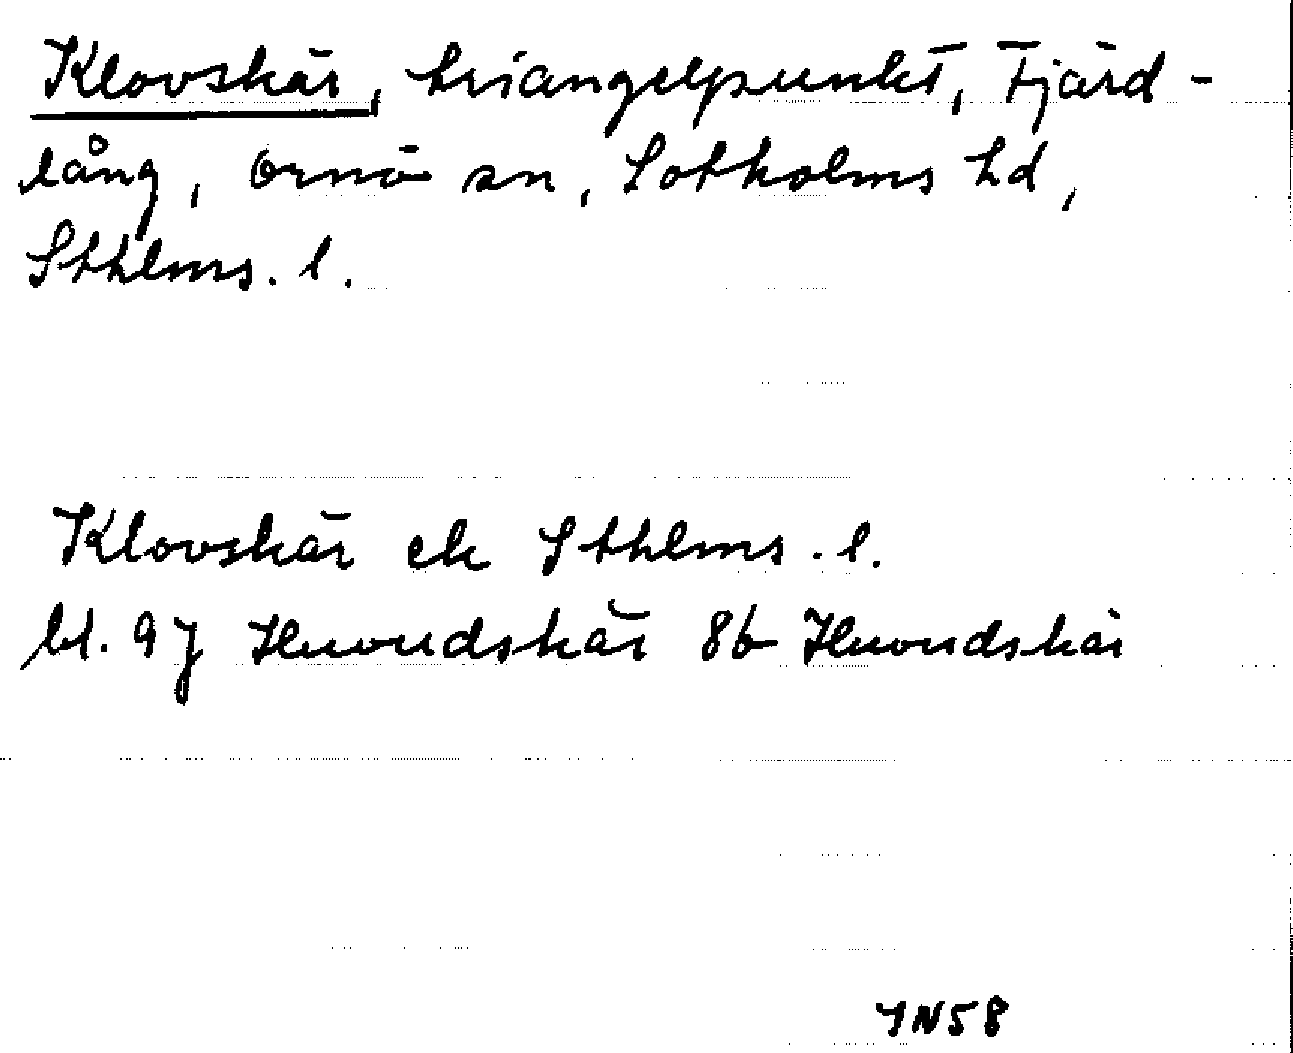 Klovskär, triangelpunkt, Fjärd-
lång, Ornö sn, Sotholms hd,
Sthlms. l.
Klovskär ek Sthlms. l.
bl. 9j Huvudskär 8b Huvudskär
YN58